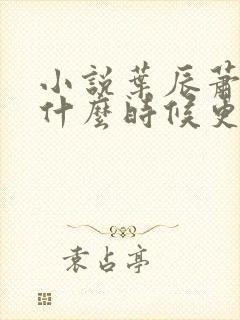 小說葉辰蕭
什麼時候更
袁占亭